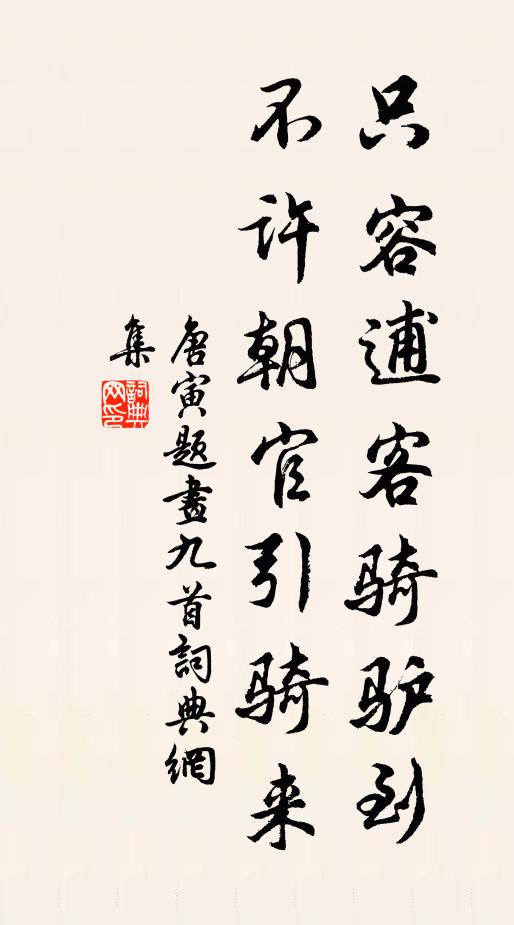 只容逋客骑驴到
不许朝官引骑来
唐寅题畫九首詞典網
集
詞典网印